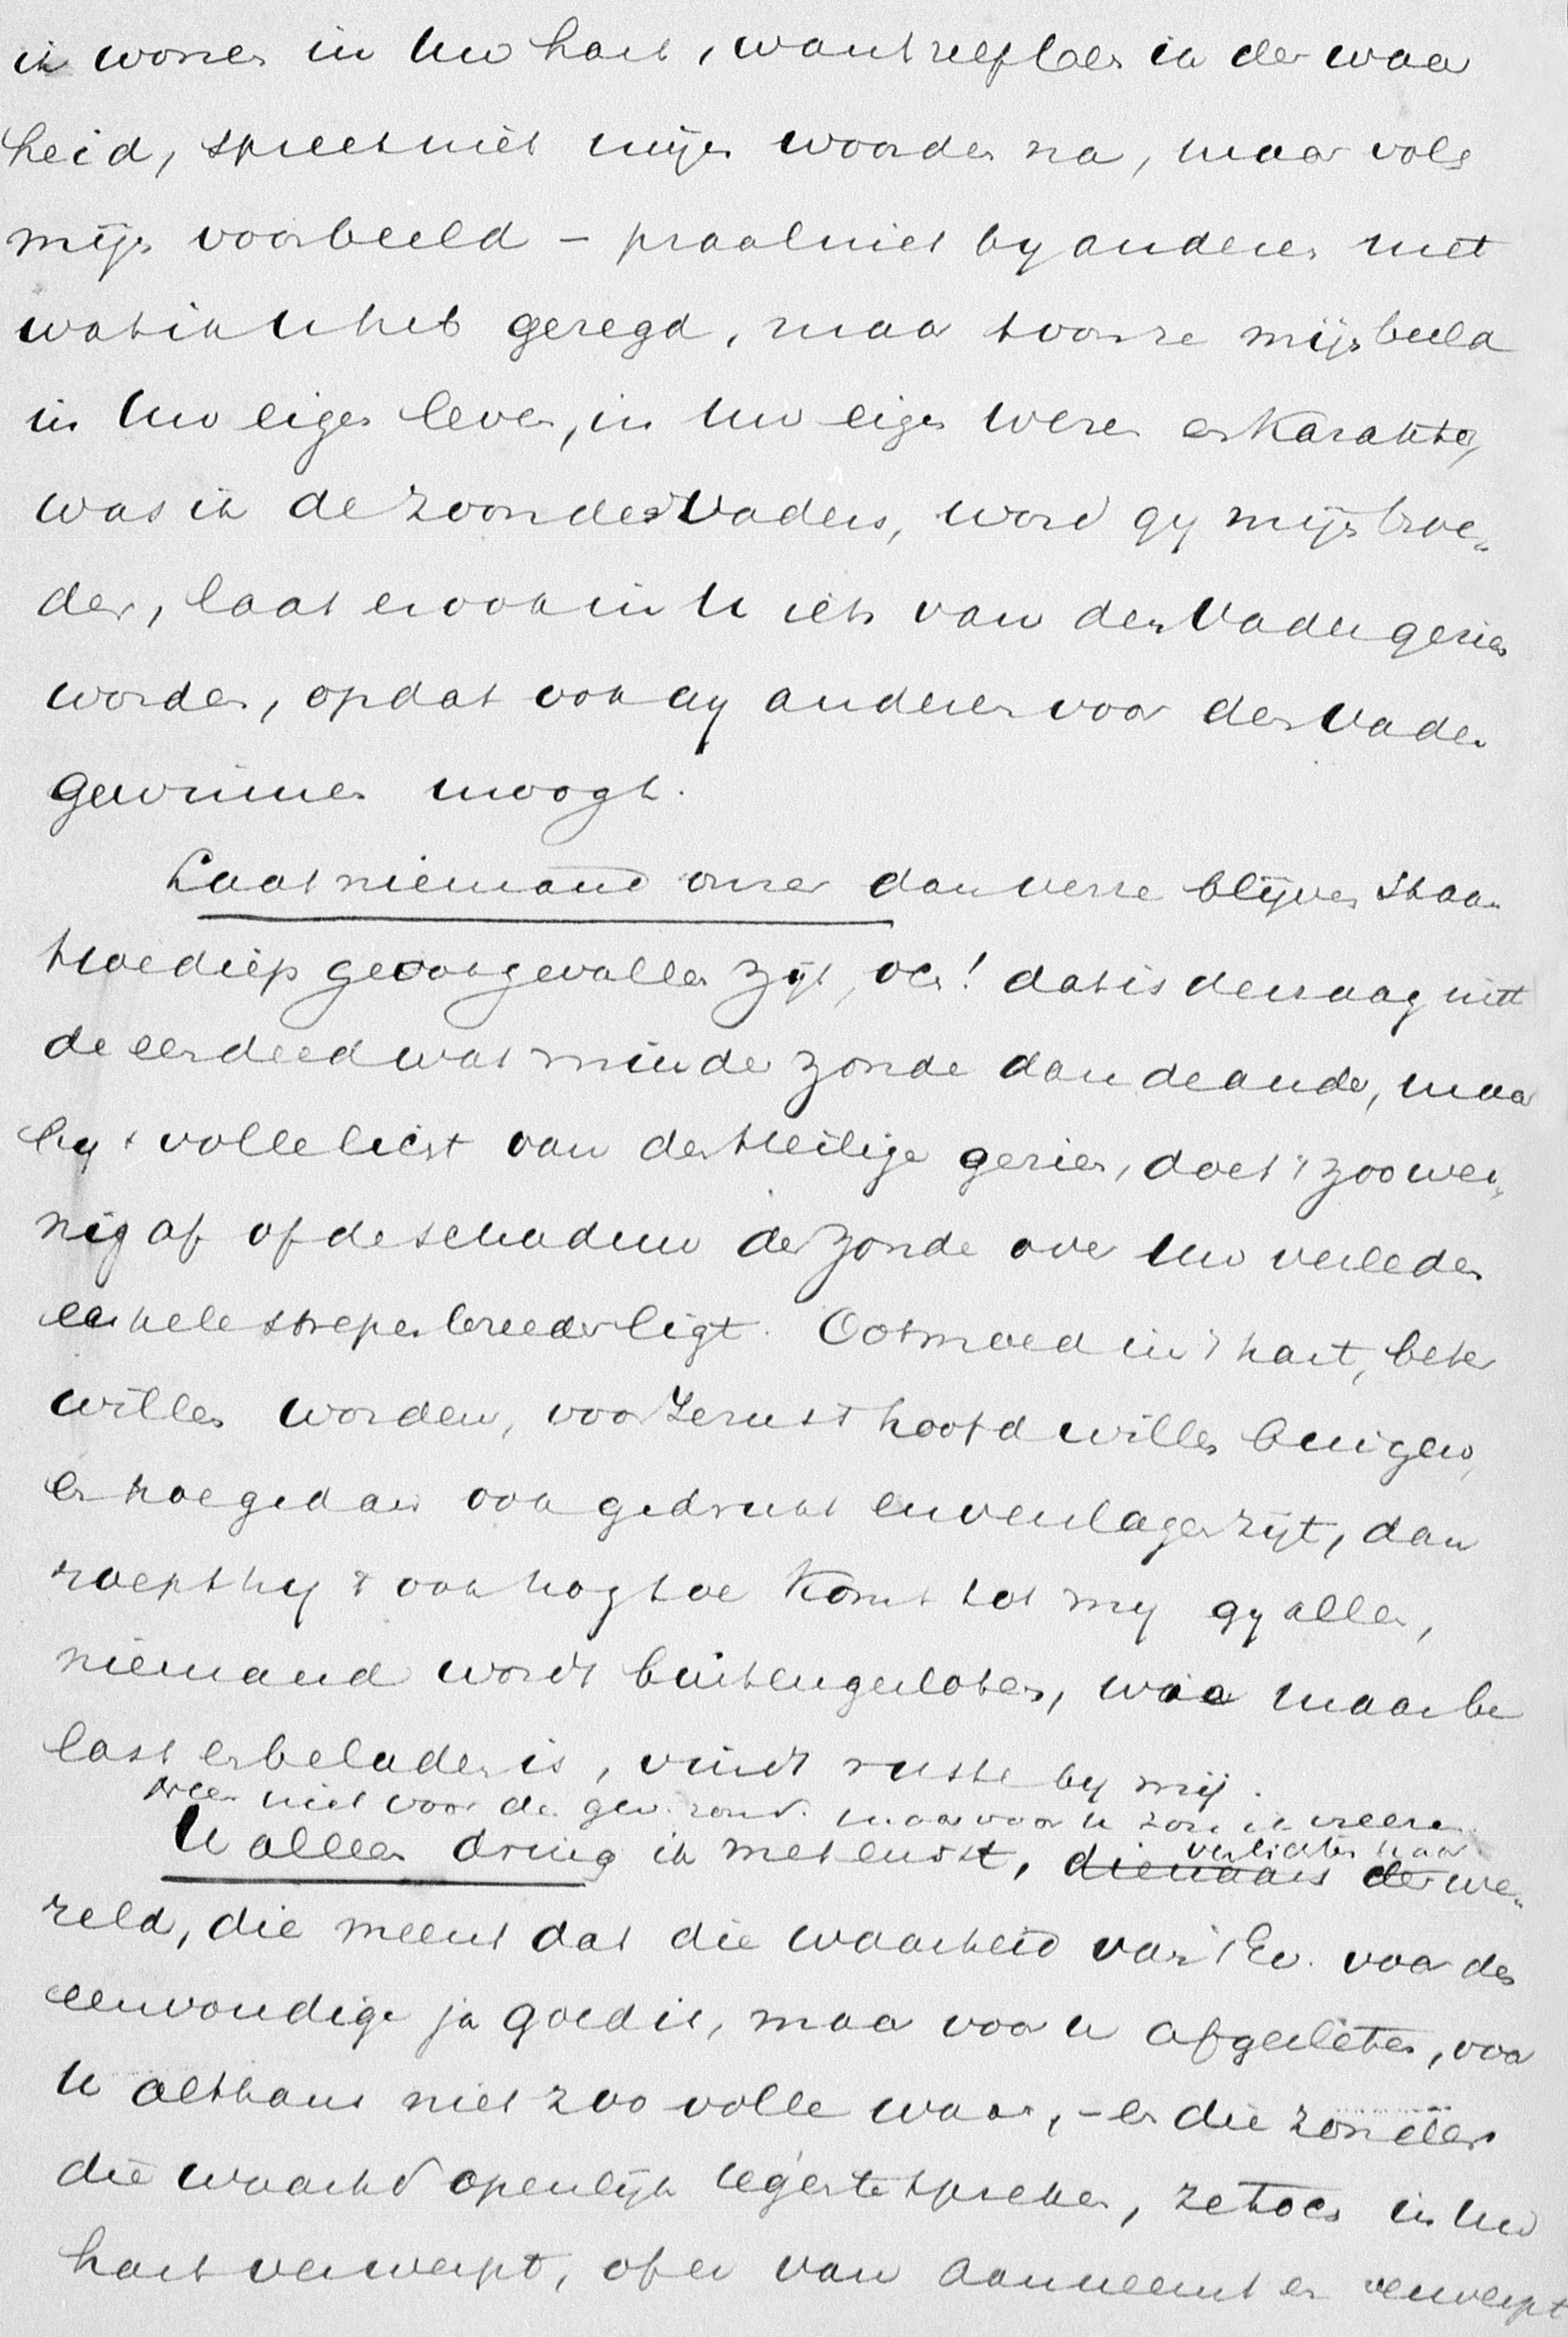 ik wonen in Uw hart, want zelf leer in de waar
heid, spreek niet mijn woorden na, maar volg
mijn voorbeeld – praal niet by anderen met
wat ik U heb gezegd, maar toon ze mijn beeld
in Uw eigen leven, in Uw eigen wezen en Karakter,
was ik de zoon des Vaders, word gy mijn broe-
der, laat er ook in U iets van den Vader gezien
worden, opdat ook gy anderen voor den Vader
gewinnen moogt.
Laat niemand onzer dan verre blijven staan
Hoe diep ge ook gevallen zijt, och! dat is de vraag niet
de een deed wat minder zonde dan de ander, maar
by 't volle licht van den Heilige gezien, doet 't zoo wei-
nig af of de schaduw der zonde over Uw verleden
enkele strepen breeder ligt. Ootmoed in 't hart, beter
willen worden, voor Jezus 't hoofd willen buigen,
en hoe ge dan ook gedrukt en verslagen zijt, dan
roept hy 't ook nog toe Komt tot my gy allen,
niemand wordt buitengesloten, wie maar be
last en beladen is, vindt ruste by mij.
niet voor de gew. zond. maar voor U zou ik vreezen
U allen dring ik met ernst, dienaars der verlichten naar we-
reld, die meent dat die waarheid van 't Ev. voor den
eenvoudige ja goed is, maar voor U afgesleten, voor
U althans niet zoo volle waar, – en die zonder
die waarhd openlijk tegen te spreken, ze toch in Uw
hart verwerpt, of er van aanneemt en verwerpt